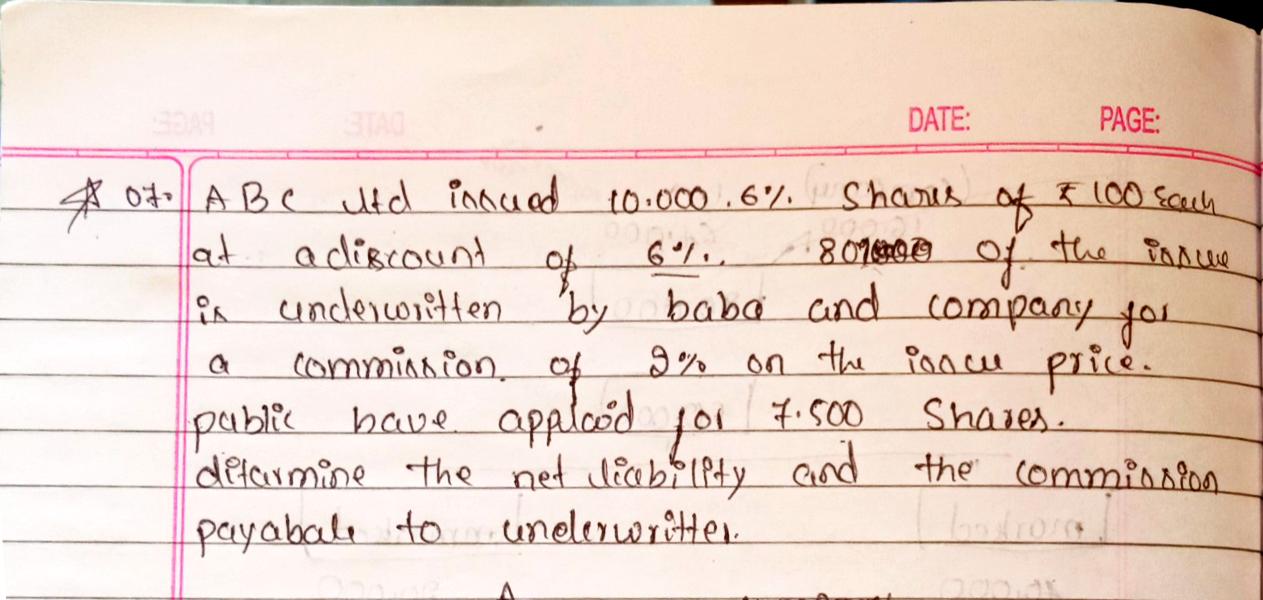 DATE: PAGE:
07. ABC Ltd issued 10.000.6%. Shares of ₹100 Each
at a discount of 6%. 80% of the issue
is underwritten by baba and company for
a commission of 2% on the issue price.
public have applaid for 7.500 Shares.
ditarmine the net liability and the commission
payabale to underwritter.